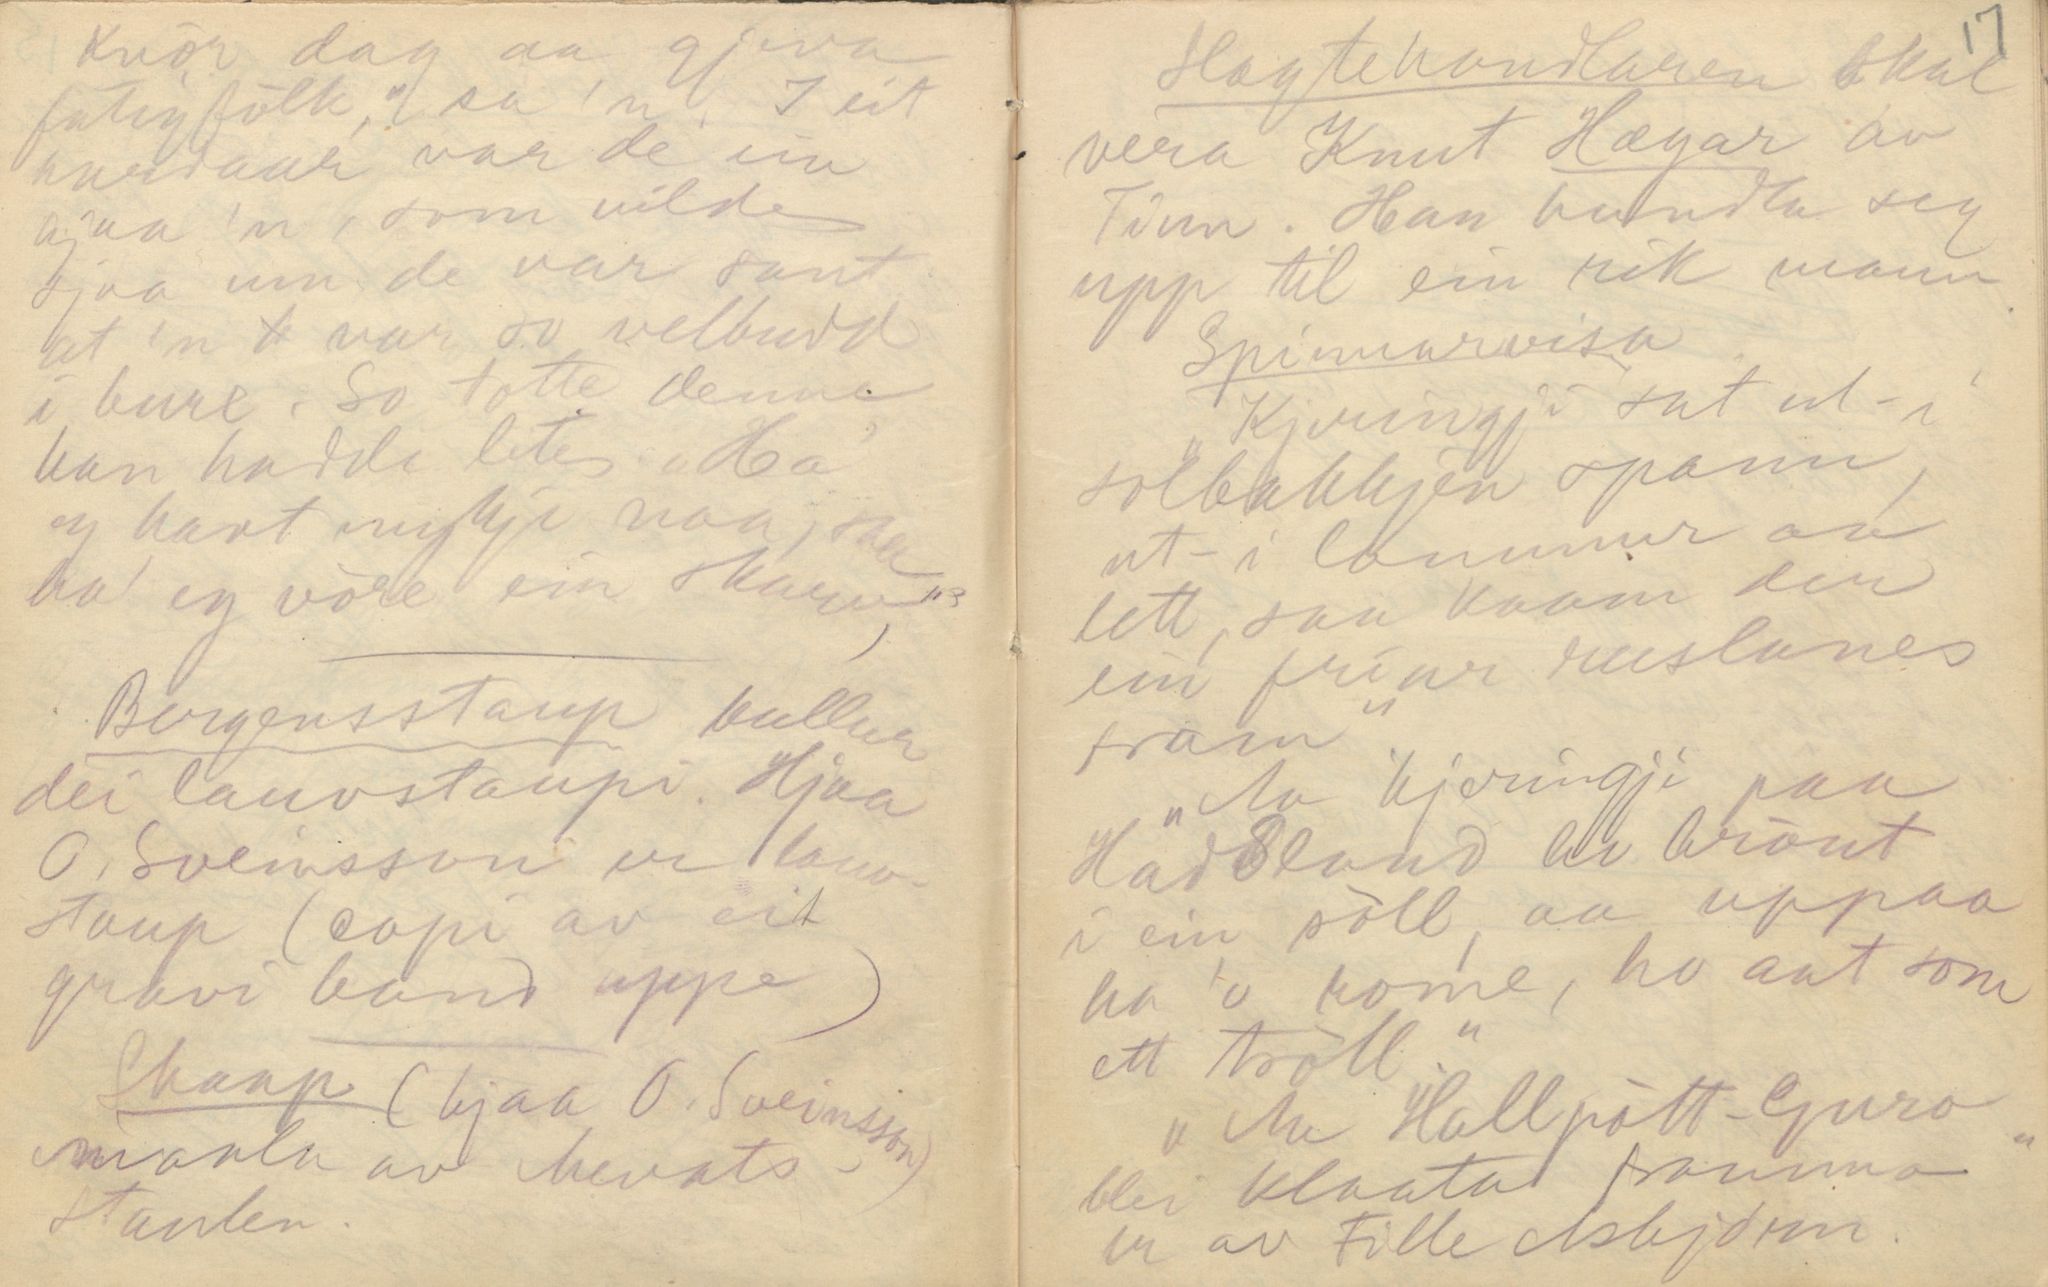 Kvör dag aa gjeva
fatigfölk," sa 'n. I eit
hjaa 'n, som vilde
sjaa um de var sant
at 'n var so velbudd
i bure. So totte denne
han hadde lite. "Ha
eg havt mykji naa, saa
ha' eg vöre ein skarv,"
Bergensstaup kallar
dei lauvstaupi. Hjaa
O. Sveinsson er lauv-
staup (copi av eit
gravi band uppe)
Skaap (hjaa O. Sveinsson)
maala av Nevats-
taulen.
17
Hægtehandlaren skal
vera Knut Hægar av
Tinn. Han handla seg
upp til ein rik mann.
Spinnarvisa
"Kjeringji sat ut-i
solbakkjen spann,
ut-i lammur av
lett, saa kaam der
ein friar ruslanes
fram"
"Aa kjeringji paa
Hadeland ho brönt
i ein söll, aa uppaa
ha 'o röme, ho aat som
ett tröll."
"Aa Hallpött-Guro
blei klaata framma"
er av Fille Asbjörn.